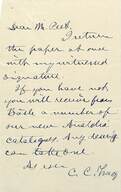 Dear Mr. Peet:
I return
the paper at once
with my witnessed
signature.
If you have not,
you will receive from
Basle a number of
our new
catalogues. Any
can take one.
As ever
C. C.